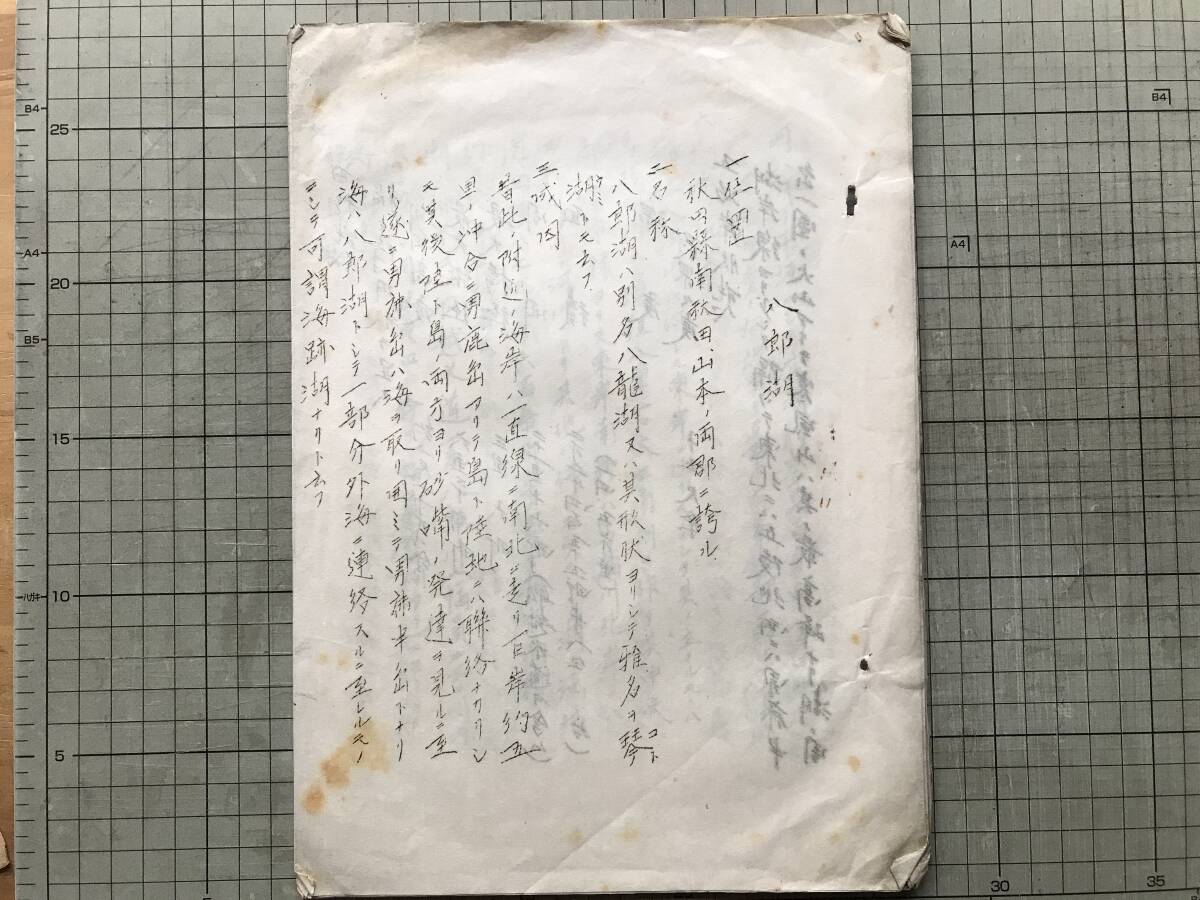 八郎湖
一 位置
秋田縣南秋田山本ノ両郡ニ誇ル
二 名称
八郎湖ハ別名八龍湖又ハ其形状ヨリシテ雅名ヲ琴コト
湖トモ云フ
三 成因
昔此ノ附近ノ海岸ハ一直線ニ南北ニ走リ 岸約五
里ノ沖合ニ男鹿島アリテ島ト陸地ニハ聯絡ナカリシ
モ其後陸ト島ノ両方ヨリ砂嘴ノ発達ヲ見ルニ至
リ遂ニ男鹿島ハ海ヲ取リ囲ミテ男鹿半島トナリ
海ハ八郎湖トシテ一部分外海ニ連絡スルニ至レルモノ
ニシテ可謂海跡湖ナリト云フ
B4
25
A4
20
B5
15
ハガキ
10
5
B4
A4
30
35